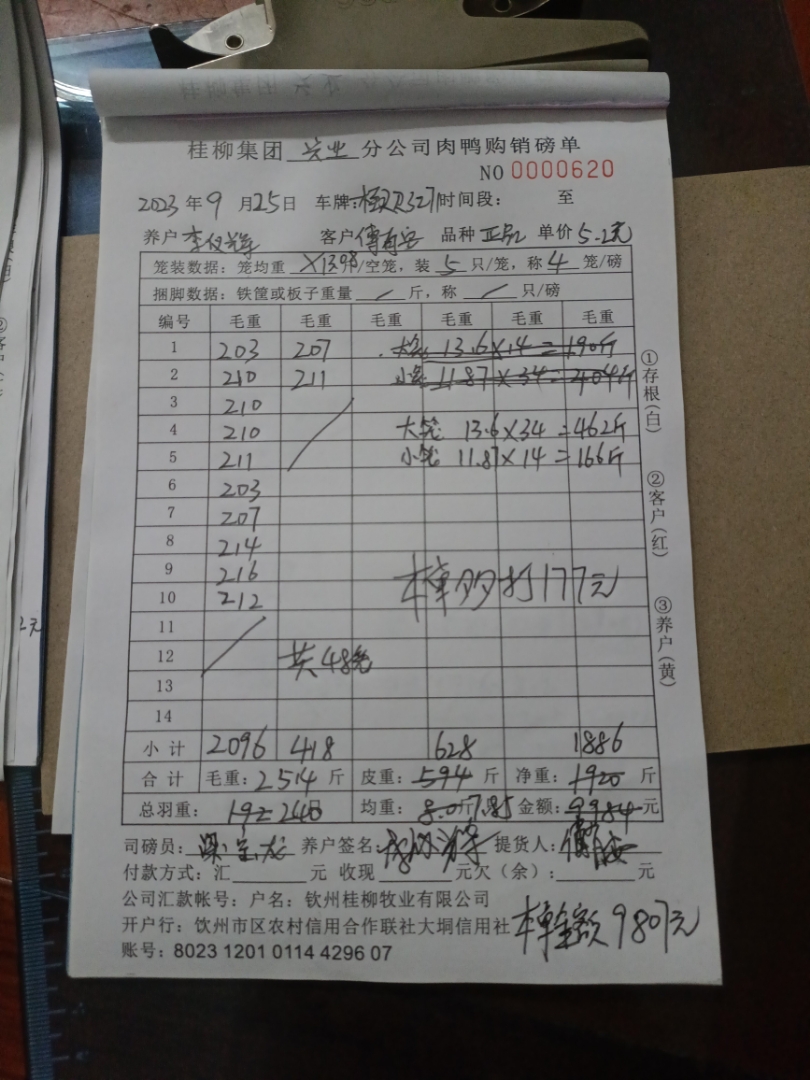 桂柳集团 兴业 分公司肉鸭购销磅单
NO 0000620
2023年9月25日 车牌: 时间段: 至
养户 李仪辉 客户 傅有容 品种 正品 单价 5.2元
笼装数据: 笼均重 ×13.98/空笼, 装 5 只/笼, 称 4 笼/磅
捆脚数据: 铁筐或板子重量 / 斤, 称 / 只/磅
编号 毛重 毛重 毛重 毛重 毛重 毛重
1 203 207 大笼 13.6×14=190斤
2 210 211 小笼 11.87×34=404斤
3 210
4 210 大笼 13.6×34=462斤
5 211 小笼 11.87×14=166斤
6 203
7 207
8 214
9 216 本单多打177元
10 212
11
12 共48笼
13
14
小计 2096 418 628 1886
合计 毛重: 2514 斤 皮重: 594 斤 净重: 1920 斤
总羽重: 均重: 8.0斤 7.85 金额: 9984 元
司磅员: 养户签名: 提货人:
付款方式: 汇 元 收现 元欠(余): 元
公司汇款帐号: 户名: 钦州桂柳牧业有限公司
开户行: 饮州市区农村信用合作联社大垌信用社
本单金额9807元
账号: 8023 1201 0114 4296 07
①存根(白) ②客户(红) ③养户(黄)
2元